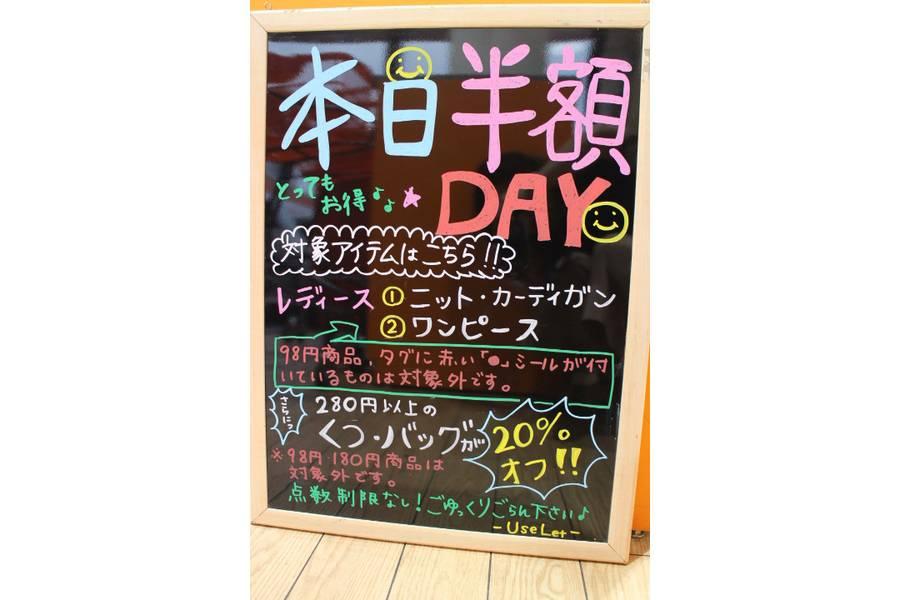 本日半額
DAY
とっても
お得♪♪
対象アイテムはこちら!!
レディース ① ニット・カーディガン
② ワンピース
98円商品、タグに赤い「●」シールが付
いているものは対象外です。
さらにっ
280円以上の
くつ・バッグが
20%
オフ!!
※98円・180円商品は
対象外です。
点数制限なし!ごゆっくりごらん下さい♪
-UseLet-